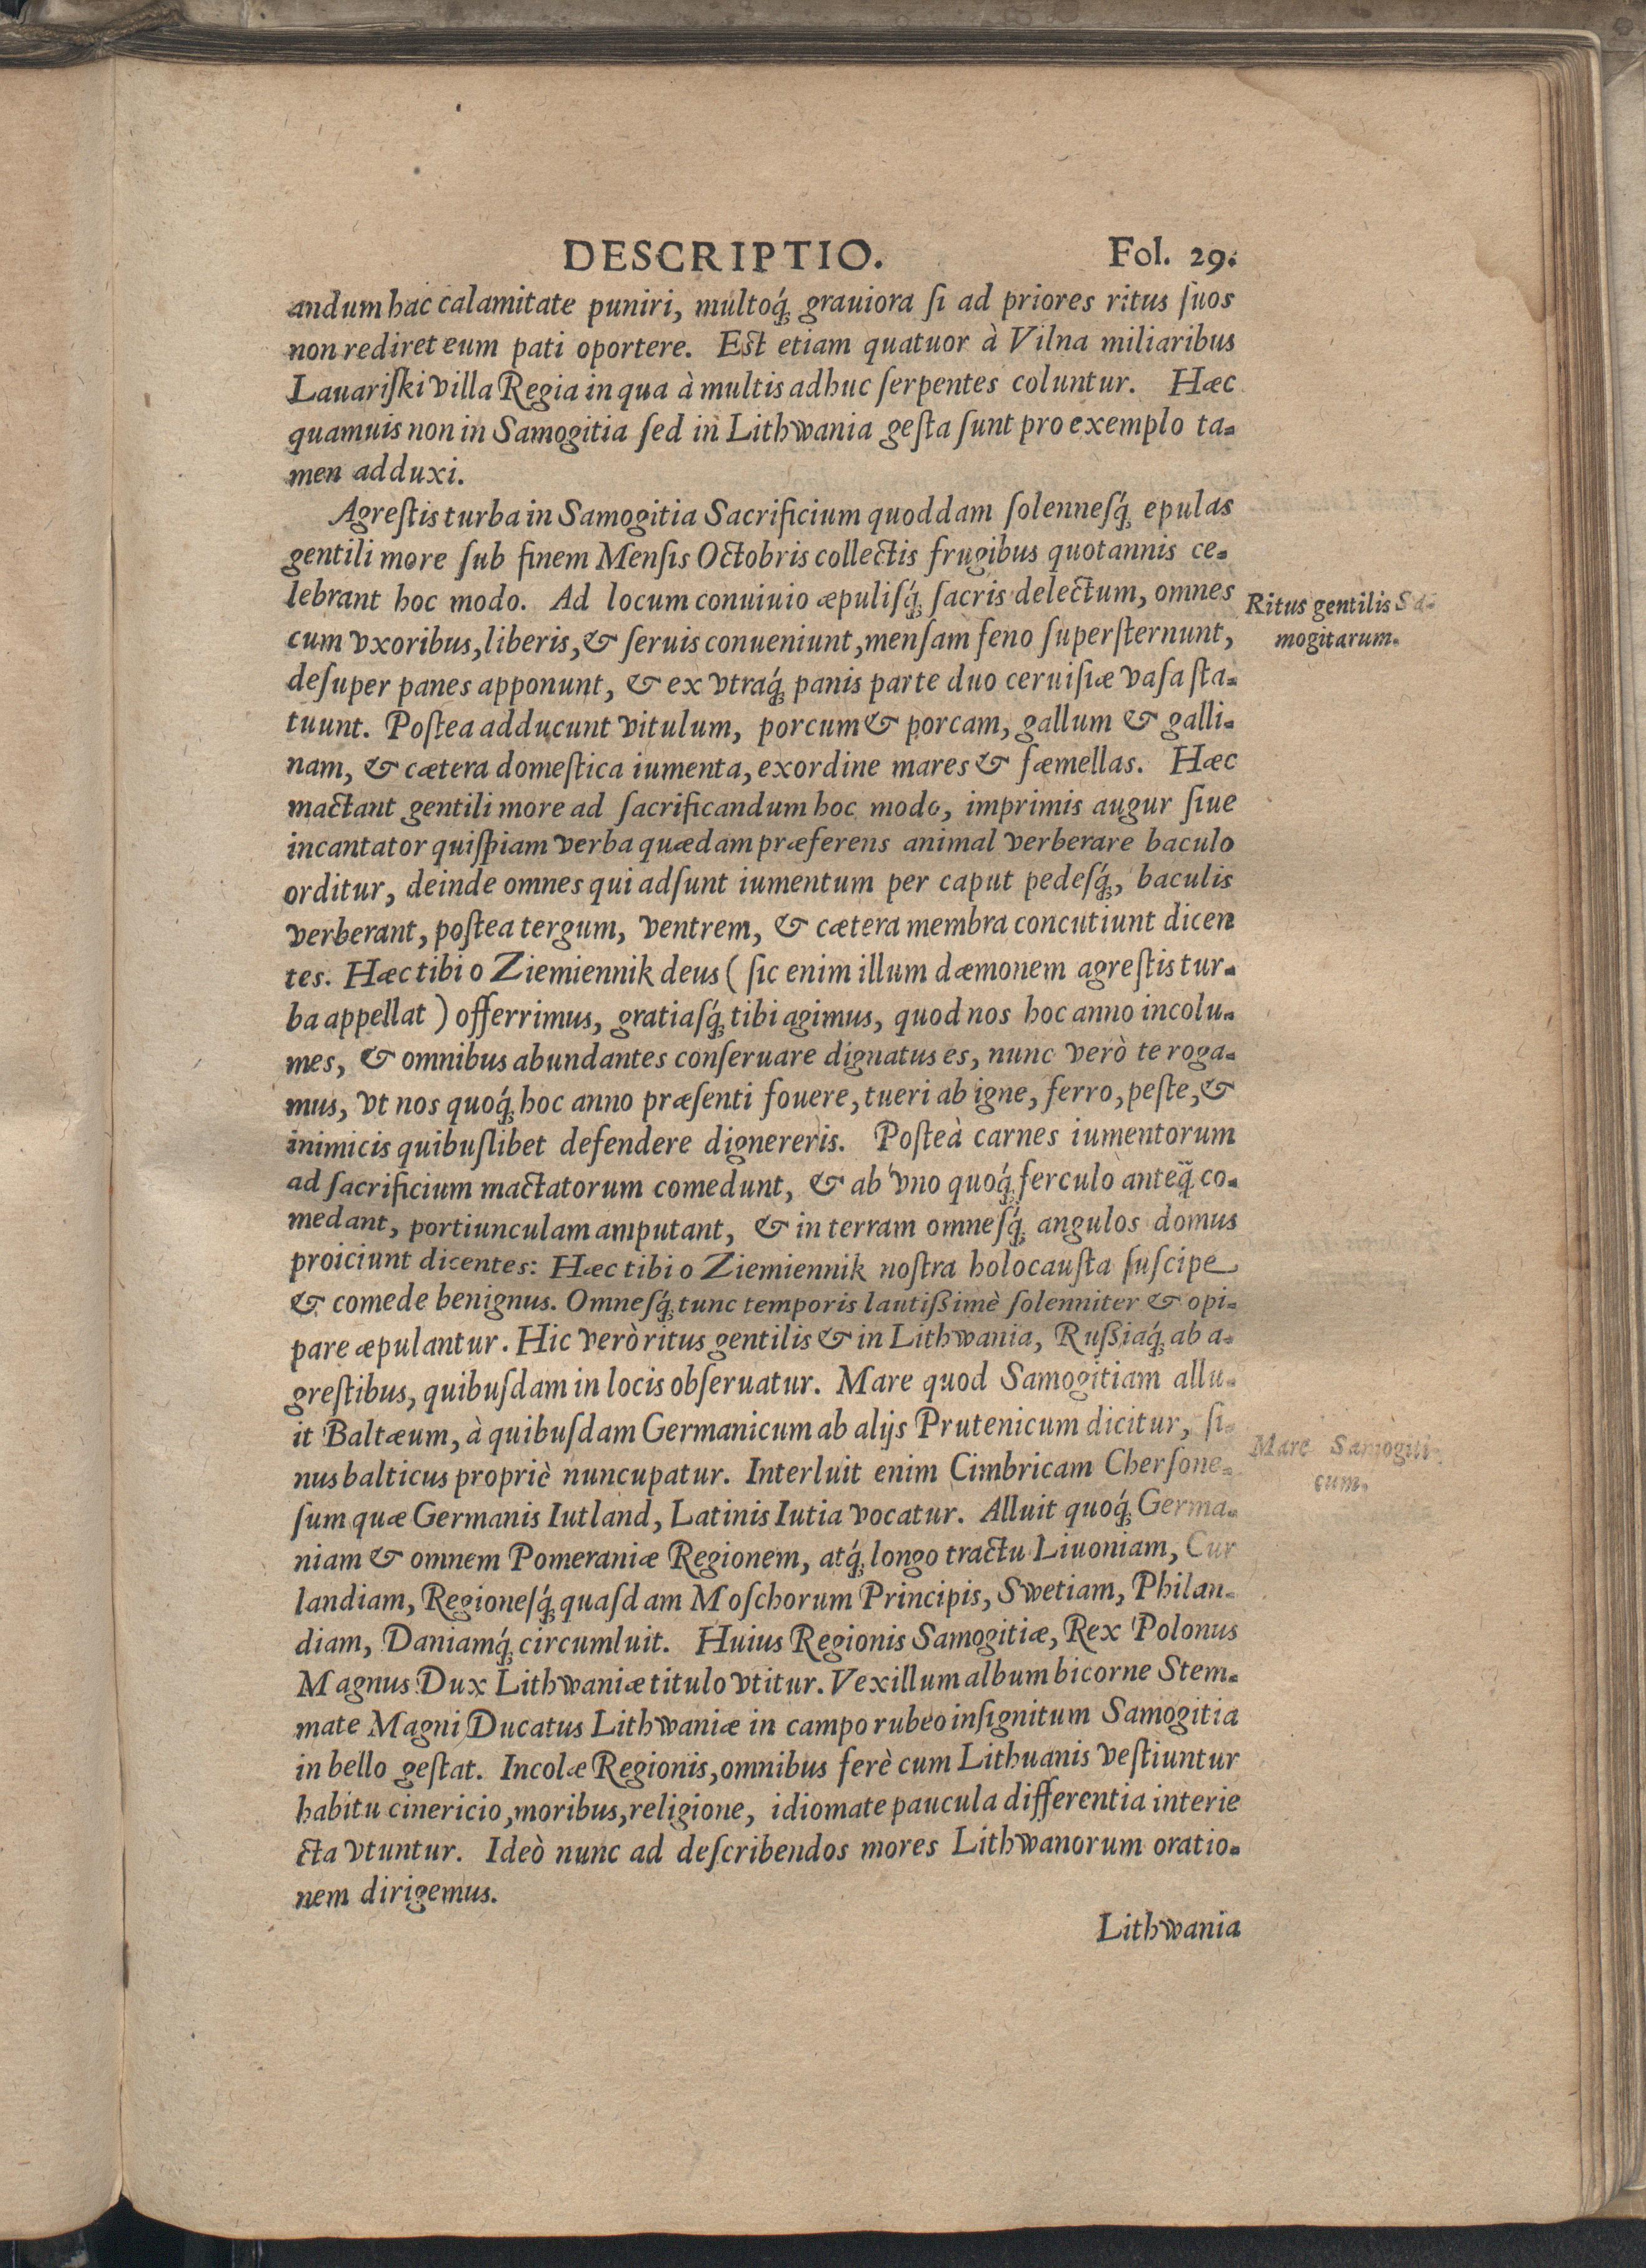 DESCRIPTIO. Fol. 29.
andum hac calamitate puniri, multoq́; grauiora ſi ad priores ritus ſuos
non rediret eum pati oportere. Eſt etiam quatuor à Vilna miliaribus
Lauariſki villa Regia in qua à multis adhuc ſerpentes coluntur. Hæc
quamuis non in Samogitia ſed in Lithwania geſta ſunt pro exemplo ta-
men adduxi.
Agreſtis turba in Samogitia Sacrificium quoddam ſolenneſq́; epulas
gentili more ſub finem Menſis Octobris collectis frugibus quotannis ce-
lebrant hoc modo. Ad locum conuiuio æpuliſq́; ſacris delectum, omnes
Ritus gentilis Sa-
mogitarum.
cum vxoribus, liberis, & ſeruis conueniunt, menſam feno ſuperſternunt,
deſuper panes apponunt, & ex vtraq́; panis parte duo ceruiſiæ vaſa ſta-
tuunt. Poſtea adducunt vitulum, porcum & porcam, gallum & galli-
nam, & cætera domeſtica iumenta, ex ordine mares & fæmellas. Hæc
mactant gentili more ad ſacrificandum hoc modo, imprimis augur ſiue
incantator quiſpiam verba quædam præferens animal verberare baculo
orditur, deinde omnes qui adſunt iumentum per caput pedeſq́;, baculis
verberant, poſtea tergum, ventrem, & cætera membra concutiunt dicen
tes. Hæc tibi o Ziemiennik deus ( ſic enim illum dæmonem agreſtis tur-
ba appellat ) offerrimus, gratiaſq́; tibi agimus, quod nos hoc anno incolu-
mes, & omnibus abundantes conſeruare dignatus es, nunc verò te roga-
mus, vt nos quoq́; hoc anno præſenti fouere, tueri ab igne, ferro, peſte, &
inimicis quibuſlibet defendere dignereris. Poſteà carnes iumentorum
ad ſacrificium mactatorum comedunt, & ab vno quoq́; ferculo anteq̃; co-
medant, portiunculam amputant, & in terram omneſq́; angulos domus
proiciunt dicentes: Hæc tibi o Ziemiennik noſtra holocauſta ſuſcipe
& comede benignus. Omneſq́; tunc temporis lautißimè ſolenniter & opi-
pare æpulantur. Hic verò ritus gentilis & in Lithwania, Rußiaq́; ab a-
greſtibus, quibuſdam in locis obſeruatur. Mare quod Samogitiam allu-
it Baltæum, à quibuſdam Germanicum ab alijs Prutenicum dicitur, ſi-
Mare Samogiti-
cum.
nus balticus propriè nuncupatur. Interluit enim Cimbricam Cherſone-
ſum quæ Germanis Iutland, Latinis Iutia vocatur. Alluit quoq́; Germa-
niam & omnem Pomeraniæ Regionem, atq́; longo tractu Liuoniam, Cur
landiam, Regioneſq́; quaſdam Moſchorum Principis, Swetiam, Philan-
diam, Daniamq́; circumluit. Huius Regionis Samogitiæ, Rex Polonus
Magnus Dux Lithwaniæ titulo vtitur. Vexillum album bicorne Stem-
mate Magni Ducatus Lithwaniæ in campo rubeo inſignitum Samogitia
in bello geſtat. Incolæ Regionis, omnibus ferè cum Lithuanis veſtiuntur
habitu cinericio, moribus, religione, idiomate paucula differentia interie
cta vtuntur. Ideò nunc ad deſcribendos mores Lithwanorum oratio-
nem dirigemus.
Lithwania